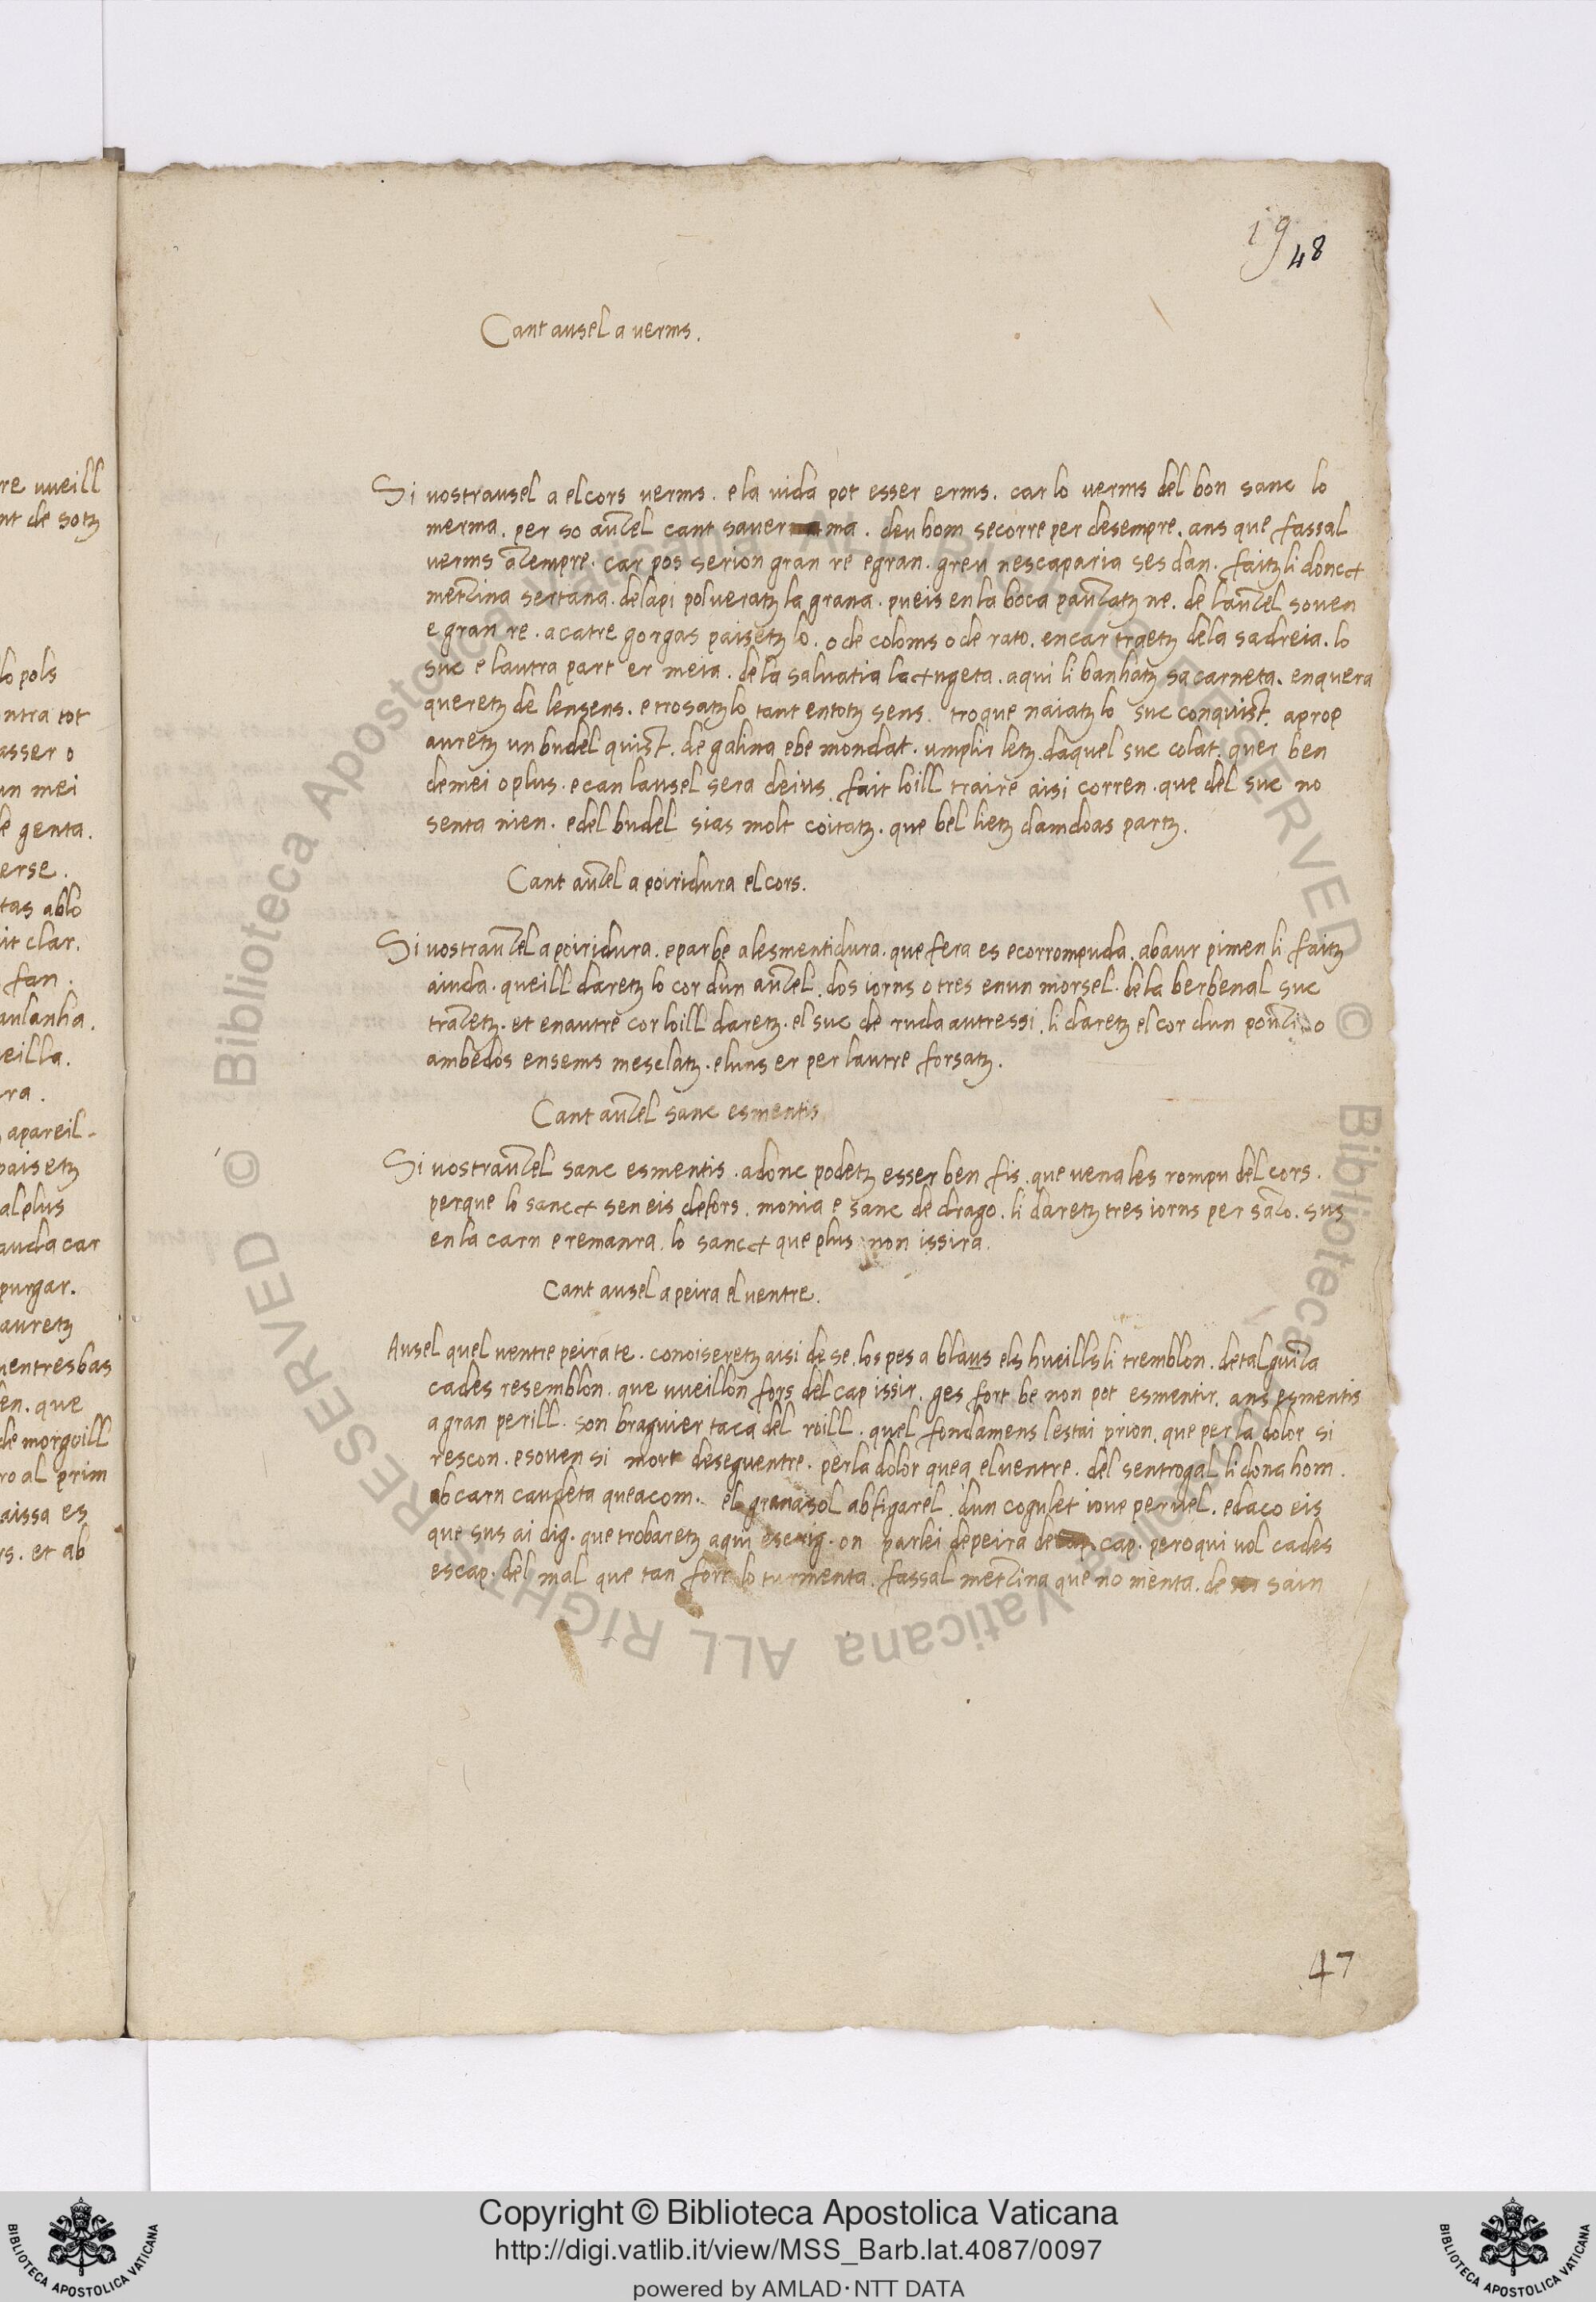 19
48
Cant ausel a uerms.
Si uostrausel a el cors uerms. e la uida pot esser erms. car lo uerms del bon sanc lo
merma. per so auzel cant sauer ma. deu hom secorre per desempre. ans que fassal
uerms atempre. car pos serion gran re e gran. greu nescaparia ses dan. faitz li donc
metzina sertana. del api polueratz la grana. pueis en la boca pauzatz ne. de lauzel souen
e gran re. a catre gorgas paisetz lo. o de coloms o de rato. encar traetz dela sadreia. lo
suc e lautra part er meia. de la saluatia lachugeta. aqui li banhatz sa carneta. enquera
queretz de lensens. e trosatz lo tant entotz sens. tro que naiatz lo suc conquist. aprop
auretz un budel quist. de galina e be mondat. umplir letz daquel suc colat. quer ben
demei o plus. e can lausel sera deius fait loill traire aisi corren. que del suc no
senta nien. e del budel sias molt coitatz. que bel lietz damdoas partz.
Cant auzel a poiridura el cors.
Si uostrauzel a poiridura. e par be a lesmentidura. que fera es e corrompuda. ab aur pimen li faitz
aiuda. queill daretz lo cor dun auzel. dos iorns o tres en un morsel. de la berbenal suc
trazetz. et en autre cor loill daretz. el suc de ruda autressi. li daretz el cor dun pouzi. o
ambedos ensems mesclatz. e luns er per lautre forsatz.
Cant auzel sanc esmentis
Si uostrauzel sanc esmentis. adonc podetz esser ben fis. que uena les rompu del cors.
perque lo sanc sen eis defors. momia e sanc de drago. li daretz tres iorns per sazo. sus
en la carn e remanra. lo sanc que plus non issira.
Cant ausel a peira el uentre.
Ausel quel uentre peira te. conoiseretz aisi de se. los pes a blaus els hueills li tremblon. de tal guiza
cades resemblon. que uueillon fors del cap issir. ges fort be non pot esmentir. ans esmentis
a gran perill. son braguier taca del roill. quel fondamens lestai prion. que per la dolor si
rescon. e souen si mort deseguentre. per la dolor que a el uentre. del sentrogal li dona hom.
ab carn caudeta queacom. el granasol ab figarel. dun cogulet ioue per uel. e daco eis
que sus ai dig. que trobaretz aqui escrig. on parlei de peira de cap. pero qui uol cades
escap. del mal que tan fort lo turmenta. fassal metzina que no menta. de sain
47
re uueill
nt de sotz
lo pols
ontra tot
asser o
un mei
e genta.
erse.
tas ab lo
it clar.
fan.
aulanha.
eilla.
ra.
apareil-
paisetz
al plus
auda car
purgar.
auretz
uentres bas
en. que
de morgoill
ro al prim
aissa es
rs. et ab
Copyright © Biblioteca Apostolica Vaticana
http://digi.vatlib.it/view/MSS_Barb.lat.4087/0097
powered by AMLAD·NTT DATA
BIBLIOTECA APOSTOLICA VATICANA
BIBLIOTECA APOSTOLICA VATICANA
© Biblioteca Apostolica Vaticana ALL RIGHTS RESERVED © Biblioteca Apostolica Vaticana ALL RIGHTS RESERVED